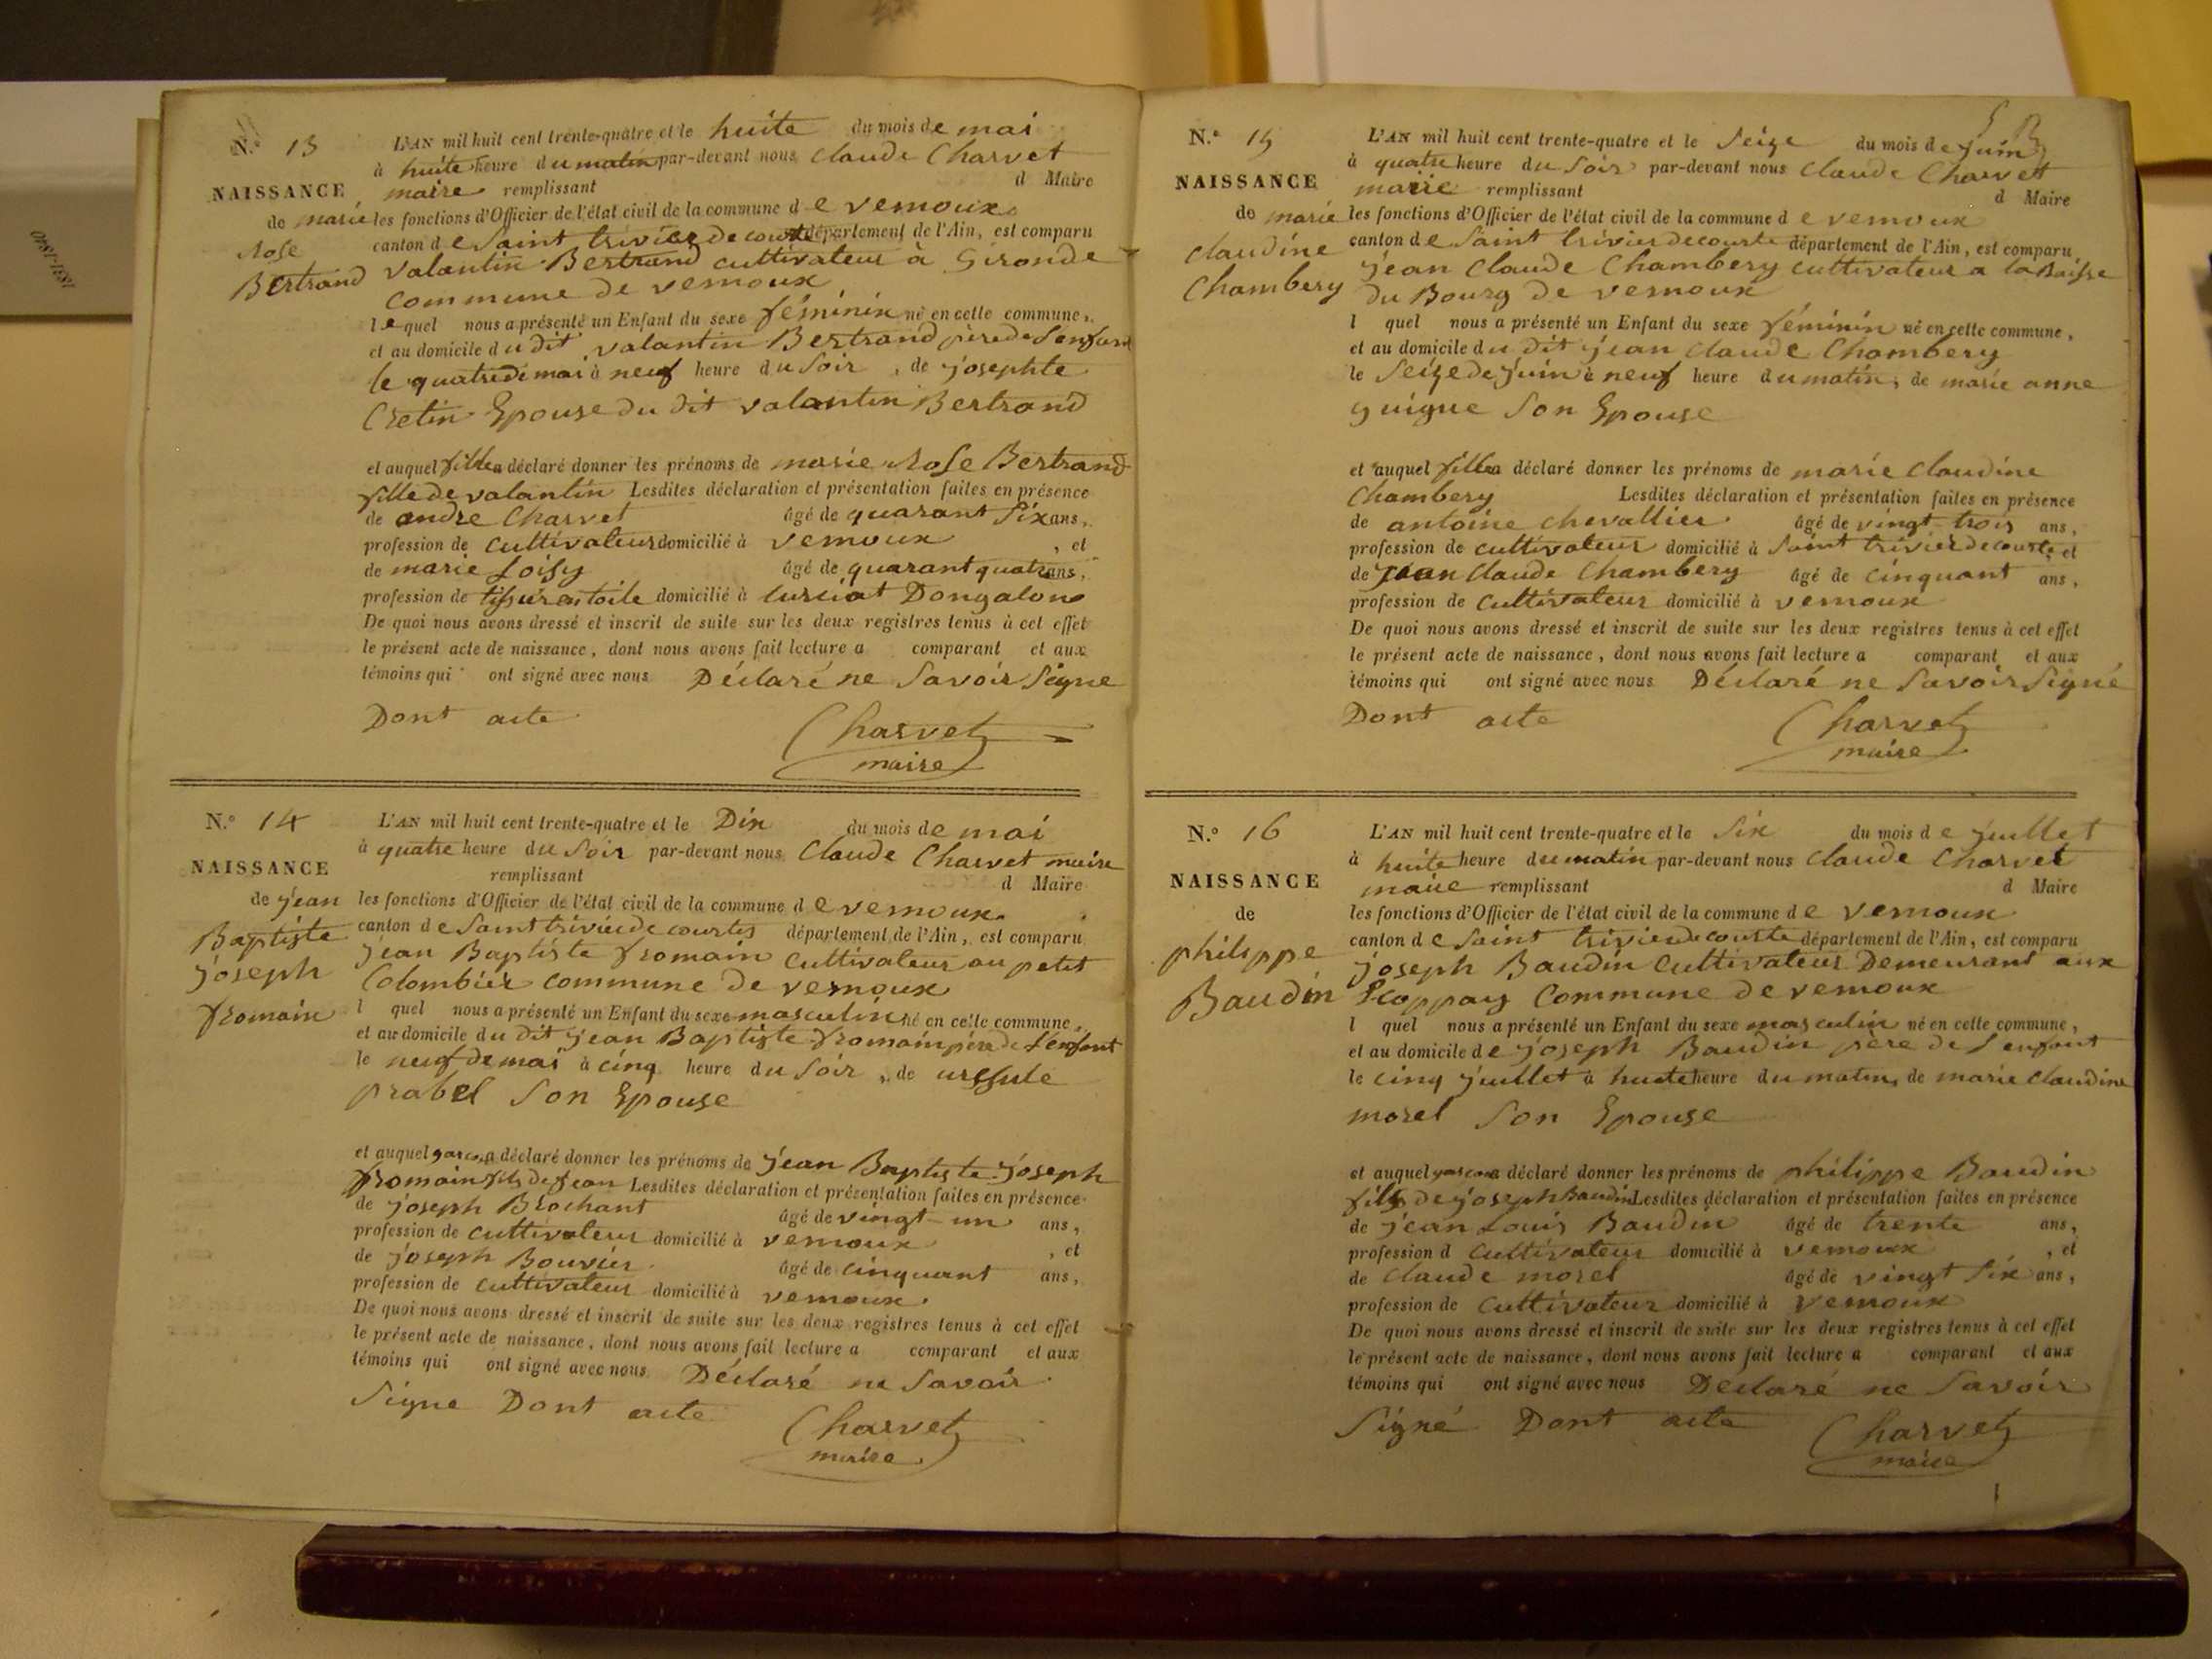 1831-1840
N.o 13
NAISSANCE
de marie
Rose
Bertrand
L'AN mil huit cent trente-quatre et le huite du mois de mai
à huite heure du matin par-devant nous Claude Charvet
maire remplissant d Maire
les fonctions d'Officier de l'état civil de la commune de vernoux
canton de Saint trivier de courte département de l'Ain, est comparu
valantin Bertrand cultivateur à Gironde
commune de vernoux
lequel nous a présenté un Enfant du sexe féminin né en cette commune,
et au domicile du dit valantin Bertrand père de Lenfant
le quatre de mai à neuf heure du Soir, de josephte
Cretin Epouse du dit valantin Bertrand
et auquel fille a déclaré donner les prénoms de marie Rose Bertrand
fille de valantin Lesdites déclaration et présentation faites en présence
de andre Charvet âgé de quarant Six ans,
profession de cultivateur domicilié à vernoux, et
de marie Loisy âgé de quarant quatre ans,
profession de tissur en toile domicilié à curciat Dongalon
De quoi nous avons dressé et inscrit de suite sur les deux registres tenus à cet effet
le présent acte de naissance, dont nous avons fait lecture a comparant et aux
témoins qui ont signé avec nous Déclaré ne Savoir Signe
Dont acte
Charvet
maire
N.o 14
NAISSANCE
de jean
Baptiste
joseph
fromain
L'AN mil huit cent trente-quatre et le Dix du mois de mai
à quatre heure du Soir par-devant nous Claude Charvet maire
remplissant d Maire
les fonctions d'Officier de l'état civil de la commune de vernoux
canton de Saint trivier de courtes département de l'Ain, est comparu
jean Baptiste fromain cultivateur au petit
Colombier commune de vernoux
l quel nous a présenté un Enfant du sexe masculin né en cette commune,
et au domicile du dit jean Baptiste fromain père de Lenfant
le neuf de mai à cinq heure du Soir, de ursule
prabel Son Epouse
et auquel garcon a déclaré donner les prénoms de jean Baptiste joseph
fromain fils de jean Lesdites déclaration et présentation faites en présence
de joseph Brochant âgé de vingt-un ans,
profession de cultivateur domicilié à vernoux, et
de joseph Bouvier âgé de cinquant ans,
profession de cultivateur domicilié à vernoux.
De quoi nous avons dressé et inscrit de suite sur les deux registres tenus à cet effet
le présent acte de naissance, dont nous avons fait lecture a comparant et aux
témoins qui ont signé avec nous Déclaré ne Savoir
Signe Dont acte
Charvet
maire
N.o 15
NAISSANCE
de marie
Claudine
Chambery
L'AN mil huit cent trente-quatre et le Seize du mois de juin
à quatre heure du Soir par-devant nous Claude Charvet
maire remplissant d Maire
les fonctions d'Officier de l'état civil de la commune de vernoux
canton de Saint trivier de courte département de l'Ain, est comparu
jean Claude Chambery cultivateur a la Baisse
du Bourg de vernoux
l quel nous a présenté un Enfant du sexe féminin né en cette commune,
et au domicile du dit jean claude Chambery
le Seize de juin à neuf heure du matin, de marie anne
guigue Son Epouse
et auquel fille a déclaré donner les prénoms de marie Claudine
Chambery Lesdites déclaration et présentation faites en présence
de antoine chevallier âgé de vingt-trois ans,
profession de cultivateur domicilié à Saint trivier de courte, et
de jean Claude Chambery âgé de cinquant ans,
profession de cultivateur domicilié à vernoux
De quoi nous avons dressé et inscrit de suite sur les deux registres tenus à cet effet
le présent acte de naissance, dont nous avons fait lecture a comparant et aux
témoins qui ont signé avec nous Déclaré ne Savoir Signé
Dont acte
Charvet
maire
N.o 16
NAISSANCE
de
philippe
Baudin
L'AN mil huit cent trente-quatre et le Six du mois de juillet
à huite heure du matin par-devant nous Claude Charvet
maire remplissant d Maire
les fonctions d'Officier de l'état civil de la commune de vernoux
canton de Saint trivier de courte département de l'Ain, est comparu
joseph Baudin cultivateur Demeurant aux
Commune de vernoux
l quel nous a présenté un Enfant du sexe masculin né en cette commune,
et au domicile de joseph Baudin père de Lenfant
le cinq juillet à huite heure du matin, de marie claudine
morel Son Epouse
et auquel garcon a déclaré donner les prénoms de philippe Baudin
fils de joseph Baudin Lesdites déclaration et présentation faites en présence
de jean Louis Baudin âgé de trente ans,
profession d cultivateur domicilié à vernoux, et
de claude morel âgé de vingt Six ans,
profession de cultivateur domicilié à vernoux
De quoi nous avons dressé et inscrit de suite sur les deux registres tenus à cet effet
le présent acte de naissance, dont nous avons fait lecture a comparant et aux
témoins qui ont signé avec nous Déclaré ne Savoir
Signé Dont acte
Charvet
maire